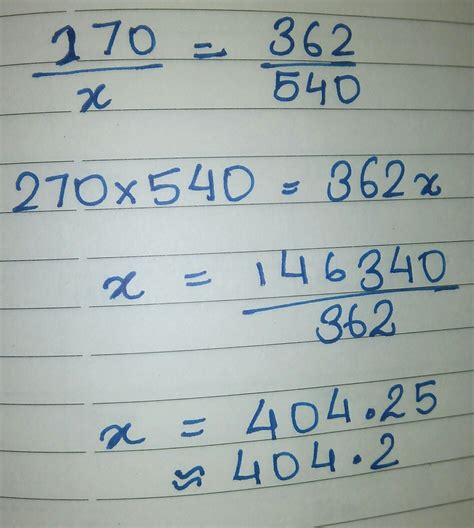 270/x = 362/540
270×540 = 362x
x = 146340/362
x = 404.25
≈ 404.2